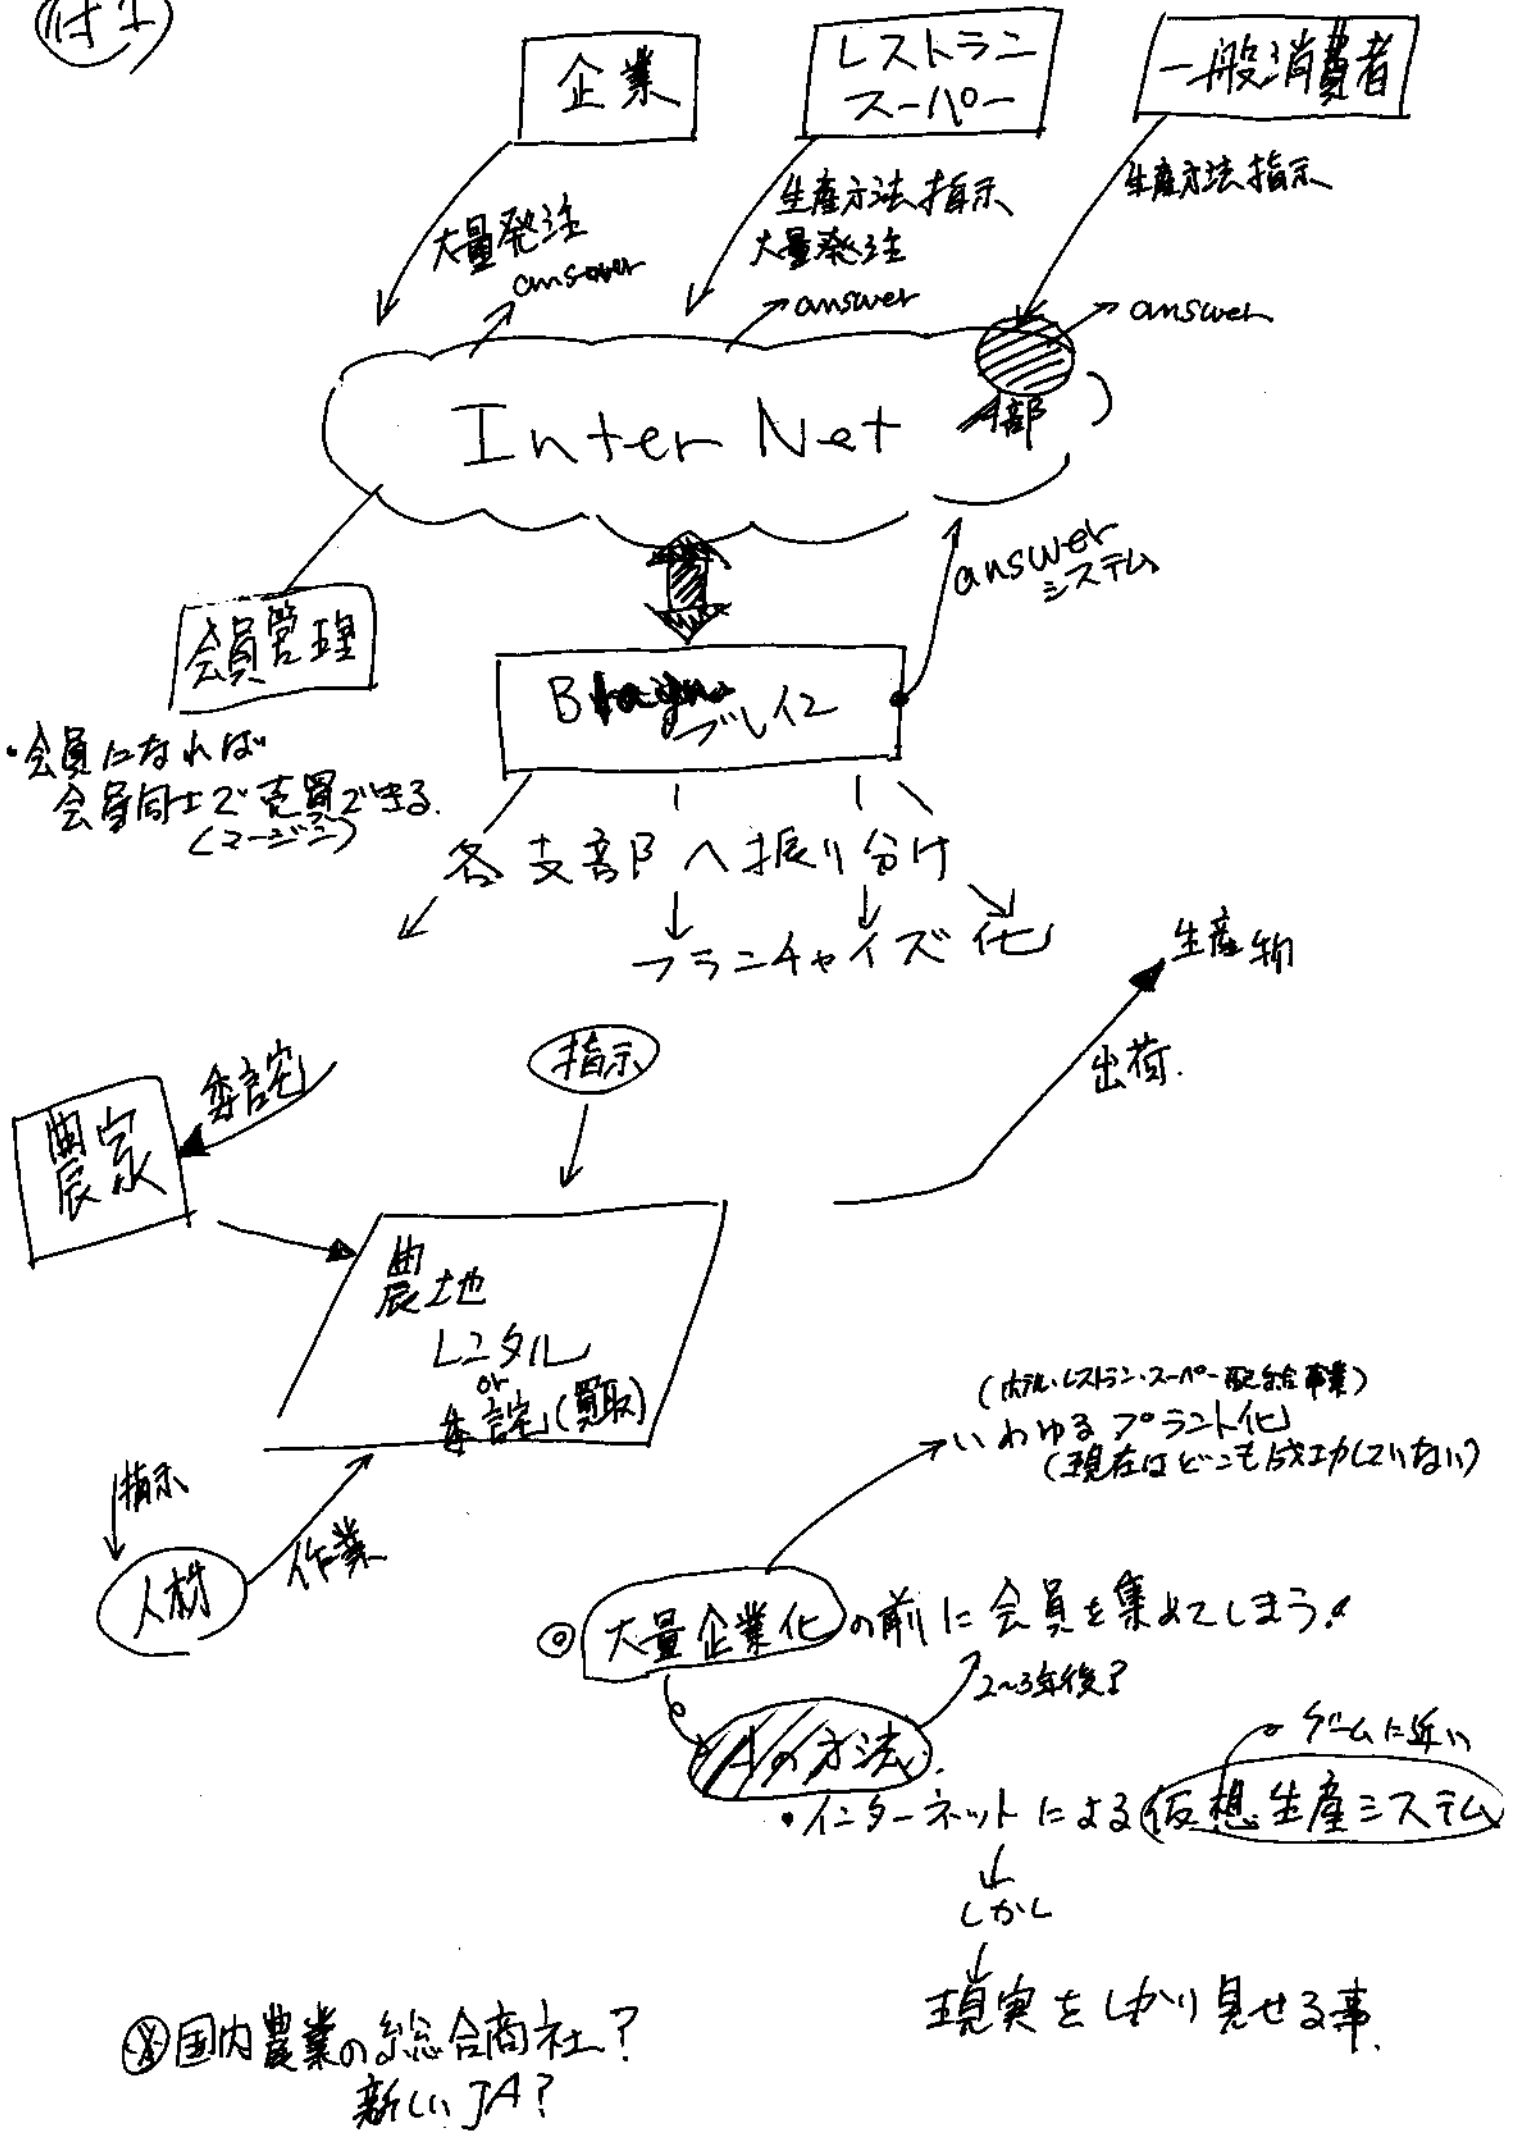 企業
レストラン
スーパー
一般消費者
大量発注
answer
生産方法指示
大量発注
answer
生産方法指示
answer
Inter Net
A部
answer
システム
会員管理
B
ブレイン
・会員になれば
会員同士で売買できる.
(マージン)
各支部へ振り分け
フランチャイズ化
生産物
出荷.
指示
委託
農家
農地
レンタル
or
委託(買取)
指示
人材
作業
(ホテル・レストラン・スーパー配給事業)
いわゆるプラント化
(現在はどこも成功していない)
◎大量企業化の前に会員を集めてしまう!
2~3年後?
Aの方法.
ゲームに近い
・インターネットによる仮想生産システム
しかし
現実をしっかり見せる事.
国内農業の総合商社?
新しいJA?